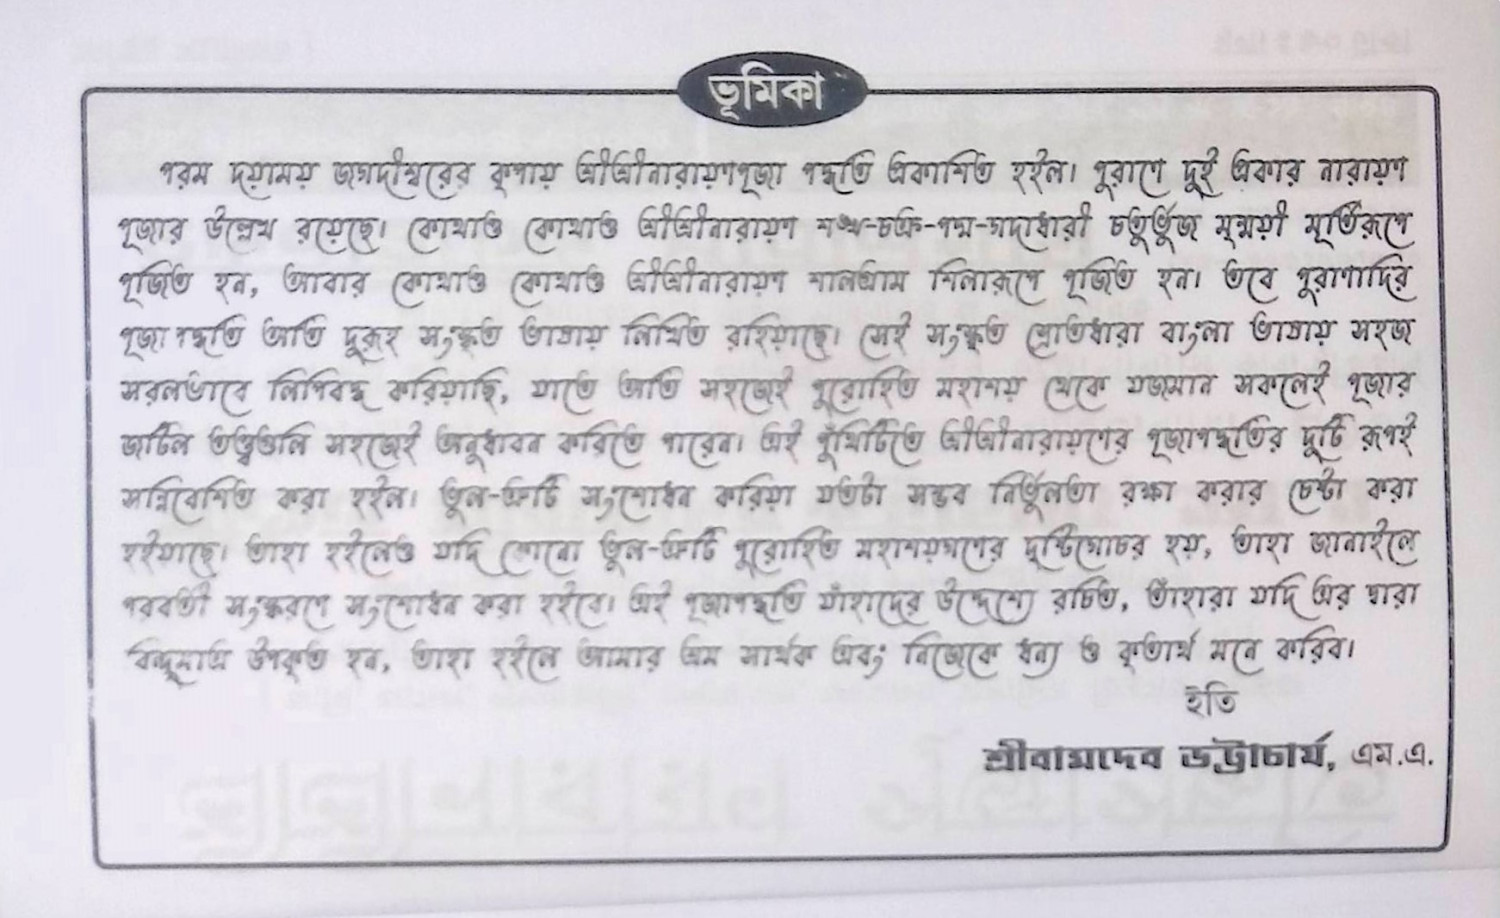 ভূমিকা
পরম দয়াময় জগদীশ্বরের কৃপায় শ্রীশ্রীনারায়ণপূজা পদ্ধতি প্রকাশিত হইল। পুরাণে দুই প্রকার নারায়ণ
পূজার উল্লেখ রয়েছে। কোথাও কোথাও শ্রীশ্রীনারায়ণ শঙ্খ-চক্র-পদ্ম-গদাধারী চতুর্ভুজ মৃন্ময়ী মূর্তিরূপে
পূজিত হন, আবার কোথাও কোথাও শ্রীশ্রীনারায়ণ শালগ্রাম শিলারূপে পূজিত হন। তবে পুরাণাদির
পূজা পদ্ধতি অতি দুরূহ সংস্কৃত ভাষায় লিখিত রহিয়াছে। সেই সংস্কৃত স্রোতধারা বাংলা ভাষায় সহজ
সরলভাবে লিপিবদ্ধ করিয়াছি, যাতে অতি সহজেই পুরোহিত মহাশয় থেকে যজমান সকলেই পূজার
জটিল তত্ত্বগুলি সহজেই অনুধাবন করিতে পারেন। এই পুঁথিটিতে শ্রীশ্রীনারায়ণের পূজাপদ্ধতির দুটি রূপই
সন্নিবেশিত করা হইল। ভুল-ত্রুটি সংশোধন করিয়া যতটা সম্ভব নির্ভুলতা রক্ষা করার চেষ্টা করা
হইয়াছে। তাহা হইলেও যদি কোনো ভুল-ত্রুটি পুরোহিত মহাশয়গণের দৃষ্টিগোচর হয়, তাহা জানাইলে
পরবর্তী সংস্করণে সংশোধন করা হইবে। এই পূজাপদ্ধতি যাঁহাদের উদ্দেশ্যে রচিত, তাঁহারা যদি এর দ্বারা
বিন্দুমাত্র উপকৃত হন, তাহা হইলে আমার শ্রম সার্থক এবং নিজেকে ধন্য ও কৃতার্থ মনে করিব।
ইতি
শ্রীবামদেব ভট্টাচার্য, এম.এ.